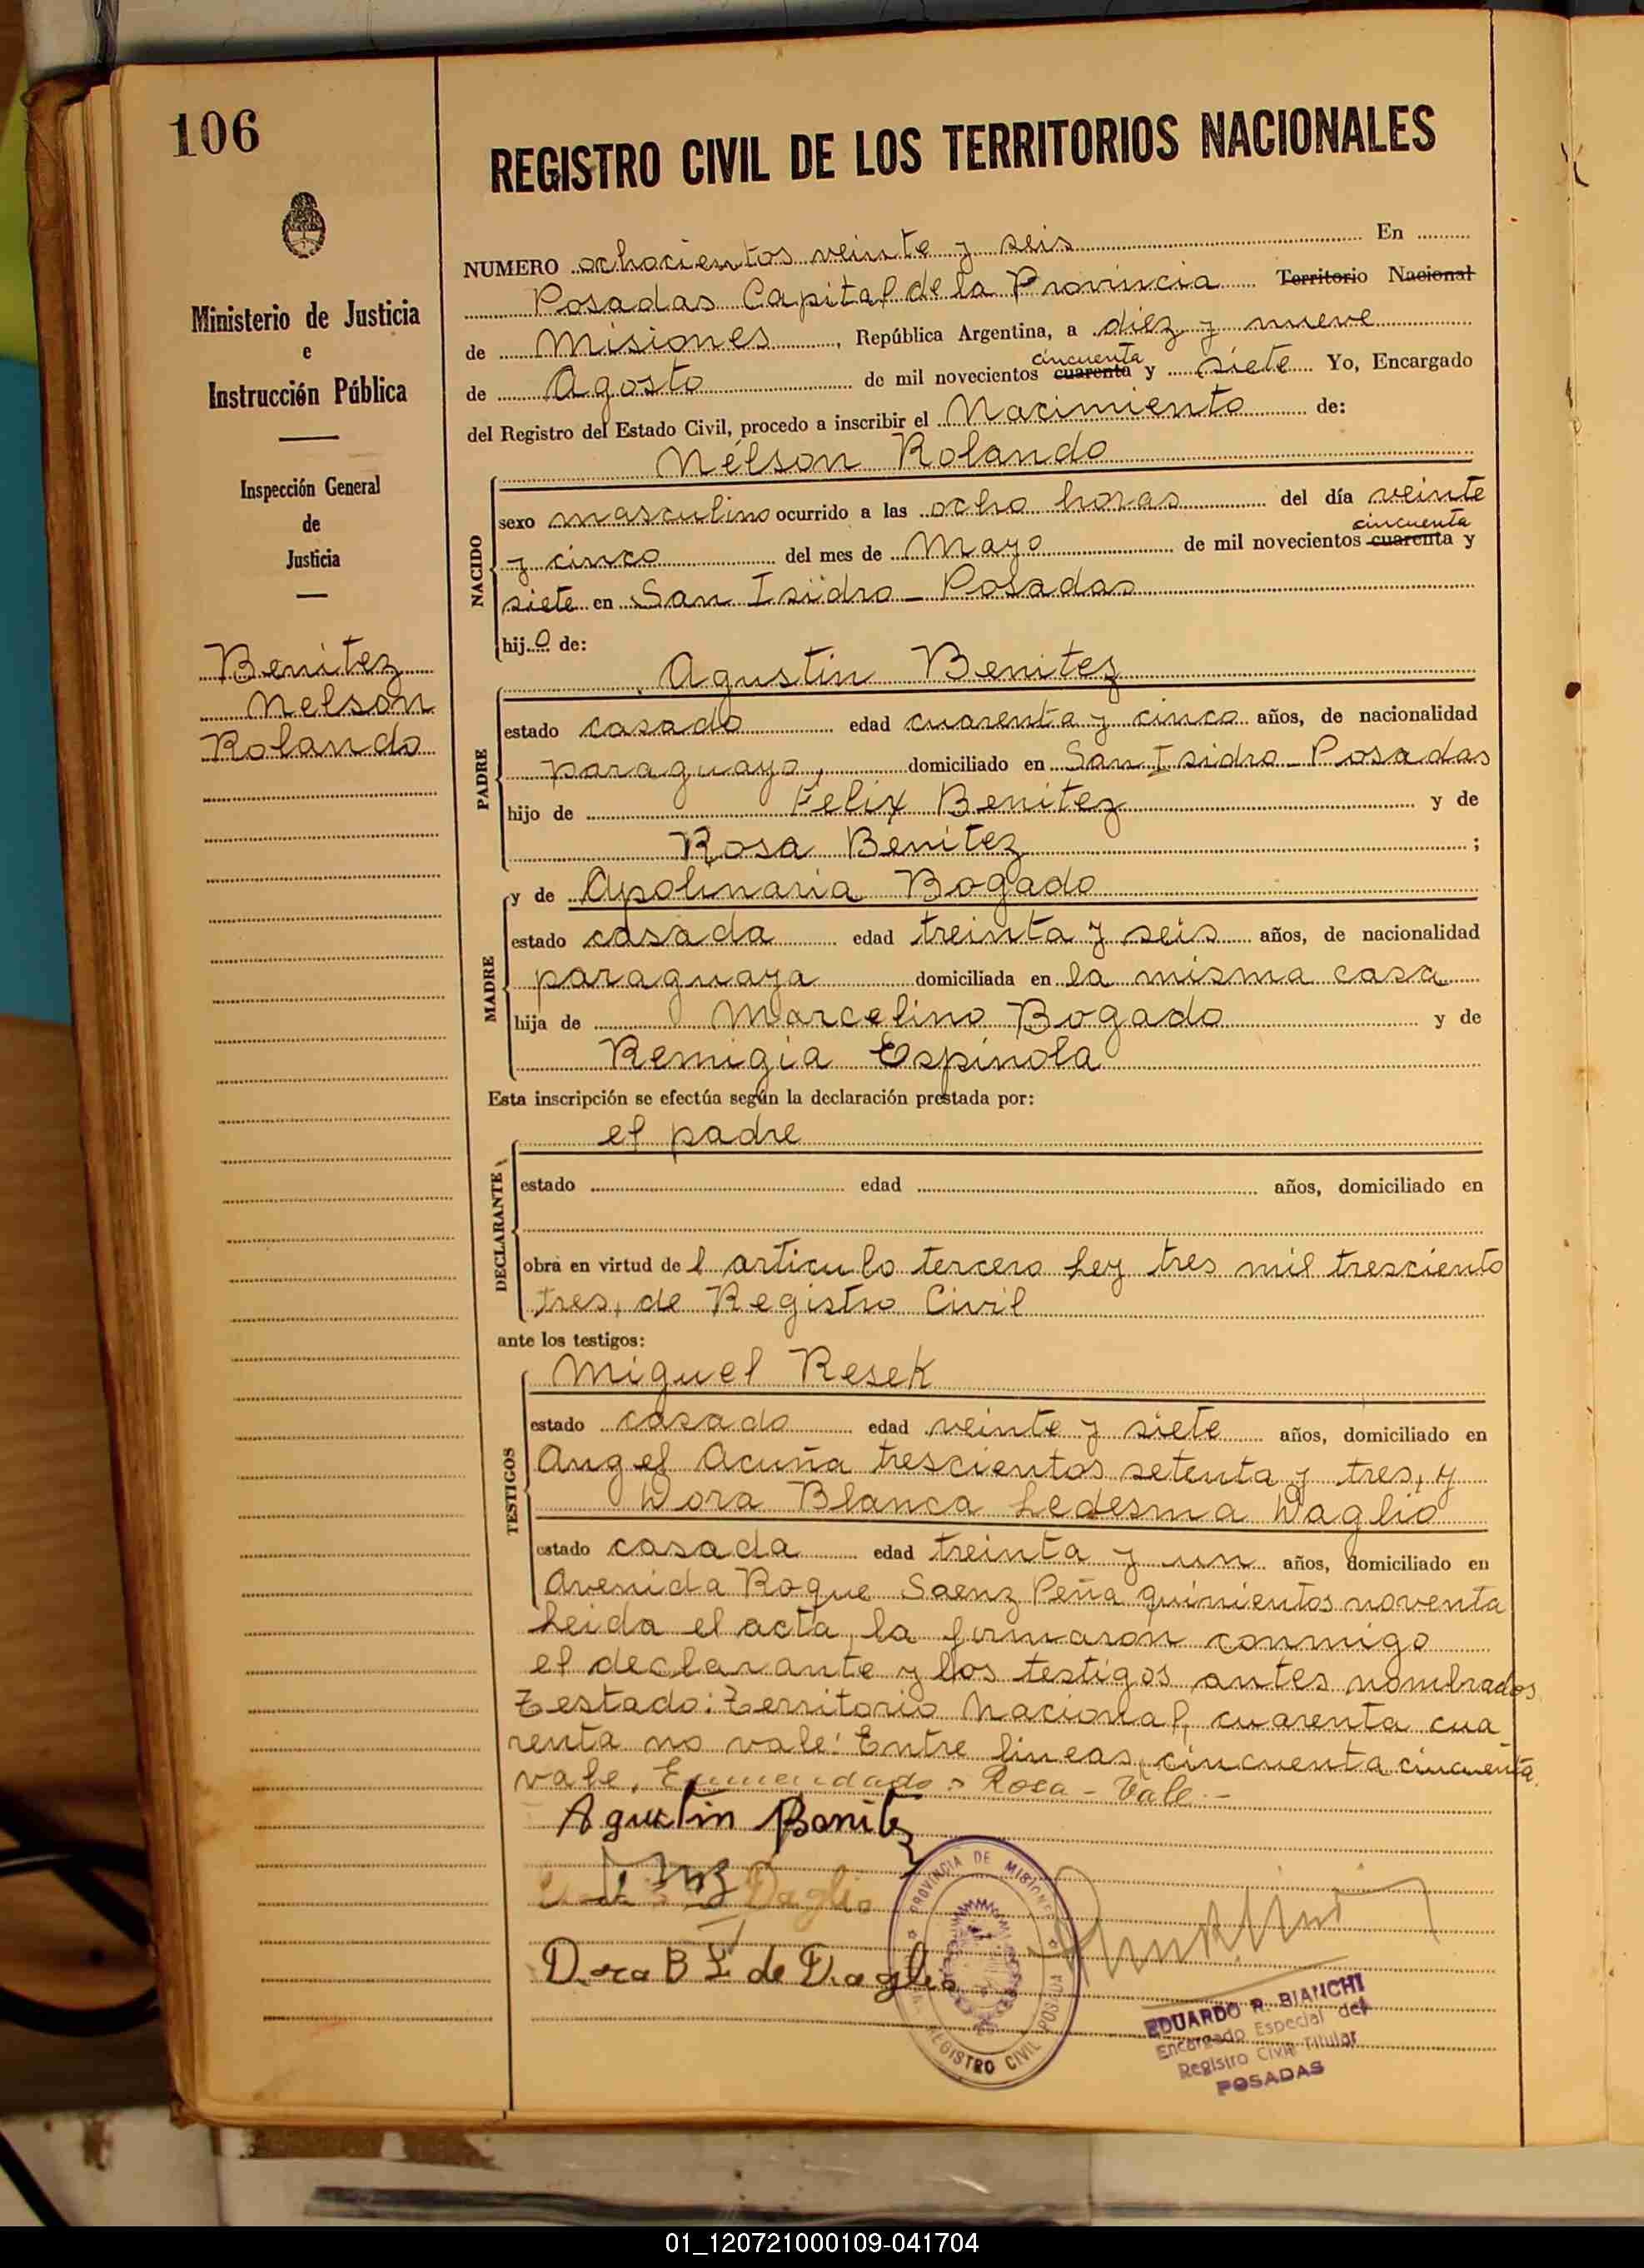 106
Ministerio de Justicia
e
Instrucción Pública
Inspección General
de
Justicia
Benitez
Nelson
Rolando
REGISTRO CIVIL DE LOS TERRITORIOS NACIONALES
NUMERO ochocientos veinte y seis En
Posadas Capital de la Provincia Territorio Nacional
de Misiones, República Argentina, a diez y nueve
cincuenta
de Agosto de mil novecientos cuarenta y siete Yo, Encargado
del Registro del Estado Civil, procedo a inscribir el Nacimiento de:
Nélson Rolando
NACIDO
sexo masculino ocurrido a las ocho horas del día veinte
cincuenta
y cinco del mes de Mayo de mil novecientos cuarenta y
siete en San Isidro - Posadas
hijo de:
Agustin Benitez
PADRE
estado casado edad cuarenta y cinco años, de nacionalidad
paraguayo, domiciliado en San Isidro - Posadas
hijo de Felix Benitez y de
Rosa Benitez ;
y de Apolinaria Bogado
MADRE
estado casada edad treinta y seis años, de nacionalidad
paraguaya domiciliada en la misma casa
hija de Marcelino Bogado y de
Remigia Espinola
Esta inscripción se efectúa según la declaración prestada por:
el padre
DECLARANTE
estado edad años, domiciliado en
obra en virtud del articulo tercero Ley tres mil tresciento
tres, de Registro Civil
ante los testigos:
Miguel Resek
TESTIGOS
estado casado edad veinte y siete años, domiciliado en
Angel Acuña trescientos setenta y tres, y
Dora Blanca Ledesma Daglio
estado casada edad treinta y un años, domiciliado en
Avenida Roque Saenz Peña quinientos noventa
Leida el acta, la firmaron conmigo
el declarante y los testigos antes nombrados
Testado: Territorio Nacional, cuarenta cua
renta no vale: Entre lineas, cincuenta cincuenta
vale. Enmendado: Rosa - Vale.-
Agustin Benitez
Daglio
Dora B L de Daglio
PROVINCIA DE MISIONES
REGISTRO CIVIL POSADAS
EDUARDO R. BIANCHI
Encargado Especial del
Registro Civil Titular
POSADAS
01_120721000109-041704